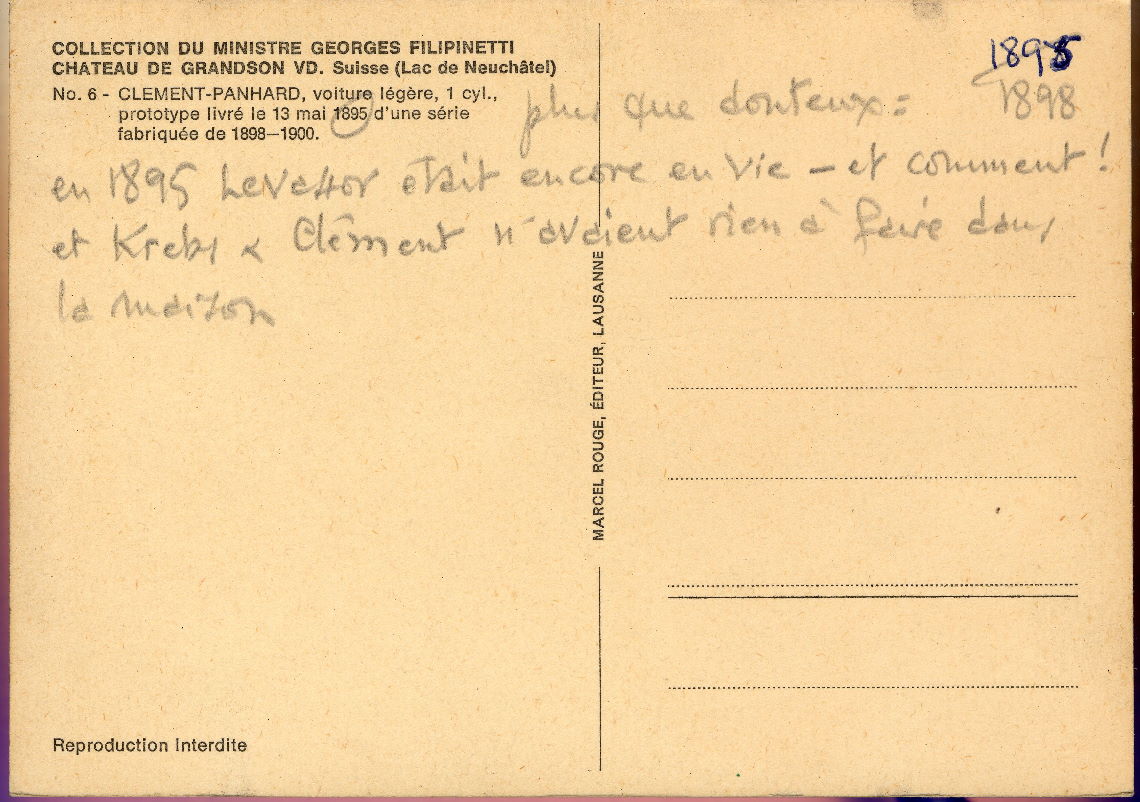 COLLECTION DU MINISTRE GEORGES FILIPINETTI
CHATEAU DE GRANDSON VD. Suisse (Lac de Neuchâtel)
No. 6 - CLEMENT-PANHARD, voiture légère, 1 cyl.,
prototype livré le 13 mai 1895 d'une série
fabriquée de 1898—1900.
1895
1898
plus que douteux :
en 1895 Levassor était encore en vie — et comment !
et Krebs & Clément n'avaient rien à faire dans
la maison
MARCEL ROUGE, ÉDITEUR, LAUSANNE
Reproduction Interdite